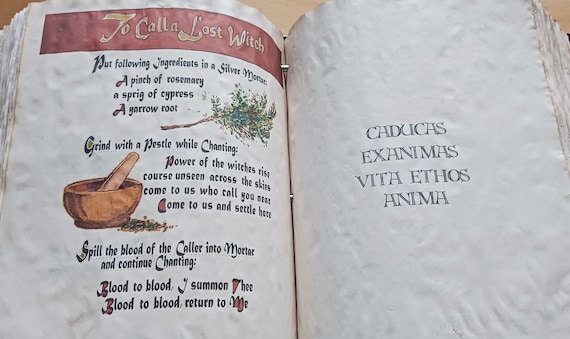 To Call a Lost Witch
Put following Ingredients in a Silver Mortar:
A pinch of rosemary
a sprig of cypress
A yarrow root
Grind with a Pestle while Chanting:
Power of the witches rise
course unseen across the skies
come to us who call you near
Come to us and settle here
Spill the blood of the Caller into Mortar
and continue Chanting:
Blood to blood, I summon Thee
Blood to blood, return to Me
CADUCAS
EXANIMAS
VITA ETHOS
ANIMA